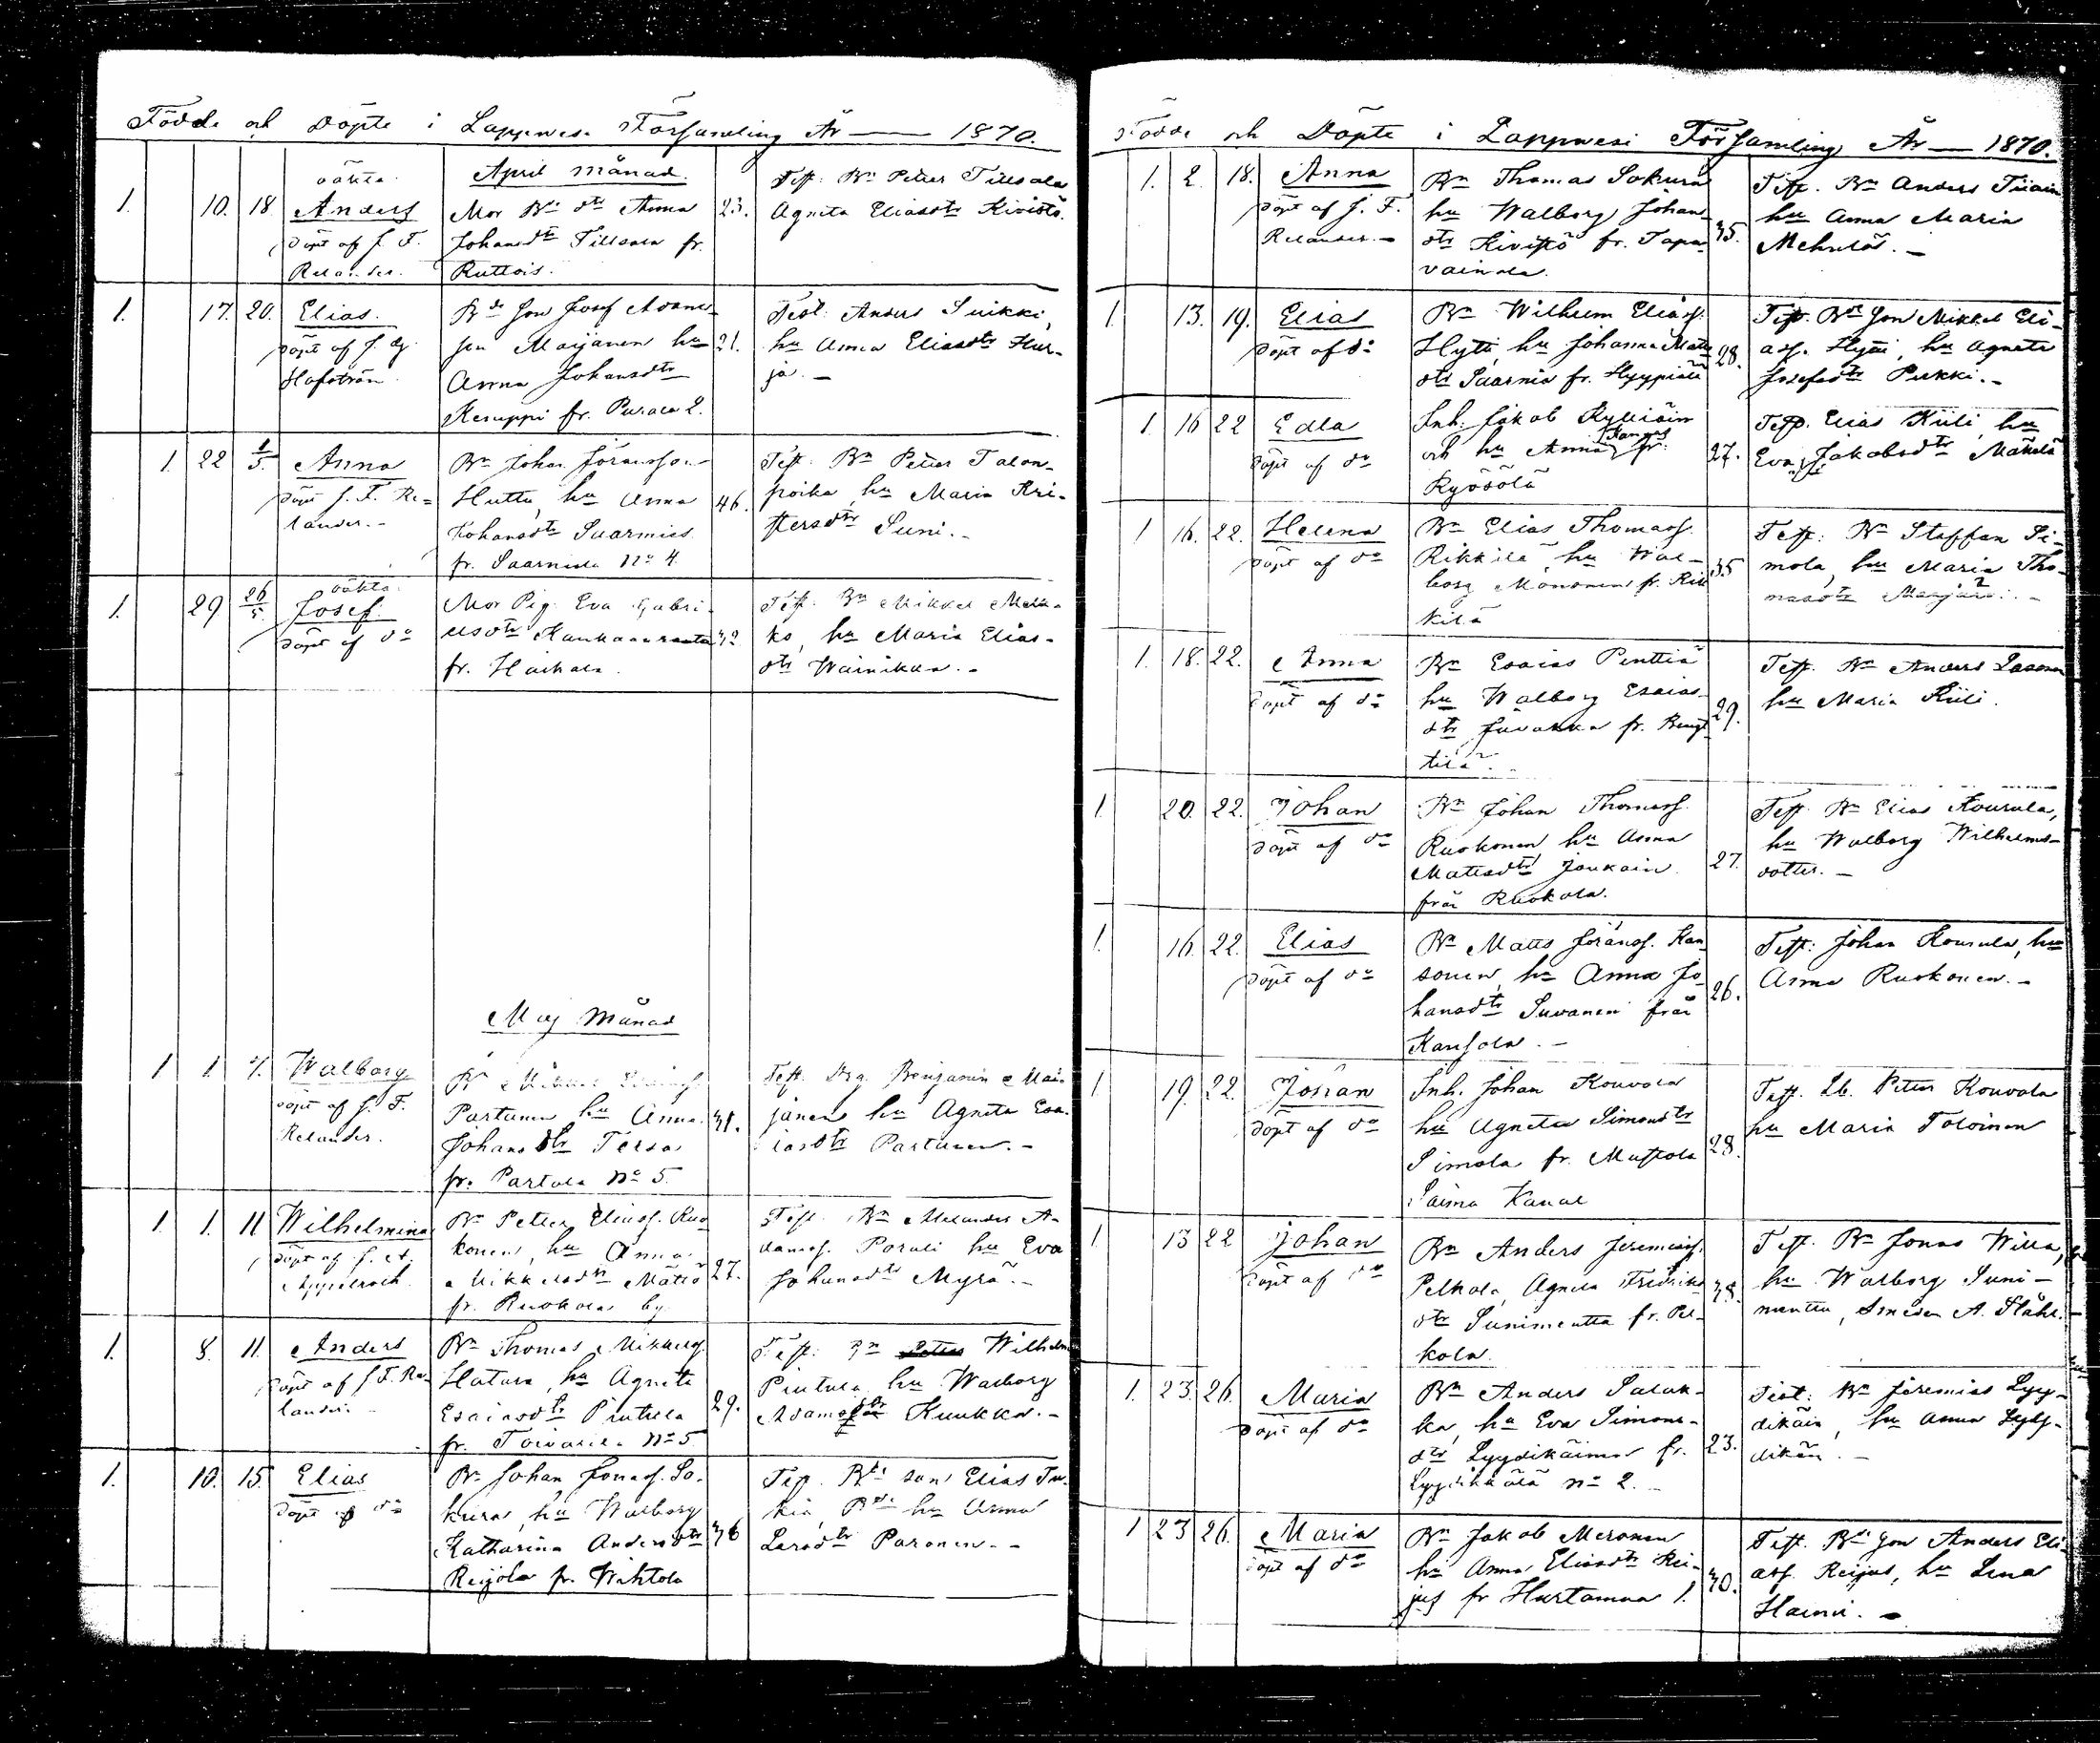 Födde och Döpte i Lappvesi Församling År — 1870.
April månad.
1. 10. 18. oäkta Anders
döpt af J. F. Relander.
Mor Bde dtr Anna
Johansdtr Tillsala fr.
Ruttois.
23.
Test. Bn Petter Tillsala
Agneta Eliasdtr Kivistö.
1. 17. 20. Elias.
döpt af J. Hj.
Hofström.
Bde Son Josef Adams
son Maijanen hu
Anna Johansdtr
Kesuppi fr. Parola 2.
21.
Test. Anders Suikki,
hu Anna Eliasdtr Hur-
ja. —
1. 22 1/5. Anna
döpt J. F. Re-
lander. —
Bn Johan Göransson
Huttu, hu Anna
Johansdtr Saarnias
fr. Saarniala No 4.
46.
Test. Bn Petter Talon-
poika hu Maria Kri-
stersdtr Suni. -
1. 29 26/5. oäkta Josef.
döpt af do
Mor Pig. Eva Gabri-
elsdtr Kaukaanranta
fr. Haikala.
32
Test. Bn Mikkel Melk-
ko, hu Maria Elias-
dtr Wainikka. -
Maj Månad
1 1. 4. Walborg
döpt af J. F.
Relander.
Partanen hu Anna
Johansdtr Tersa
fr. Partala No 5.
31.
Test. Drg. Benjamin Mai-
janen hu Agneta Esa-
iasdtr Partanen. -
1. 1. 11 Wilhelmina
döpt af J. A.
Appelroth.
Bn Petter Eliass. Ruo-
konen, hu Anna
Mikkelsdtr Mättö
fr. Ruokola by.
27.
Test. Bn Alexander A-
damss. Porali hu Eva
Johansdtr Myrä. -
1. 8. 11. Anders
döpt af J. F. Re-
lander. -
Bn Thomas Mikkelss.
Hatara, hu Agneta
Esaiasdtr Pintula
fr. Toivarila No 5.
29.
Test. Bn Wilhelm
Pintula hu Walborg
Adamsdtr Kuukka. -
1. 10. 15. Elias
döpt af do
Bn Johan Jonass. So-
kura, hu Walborg
Katharina Andersdtr
Reijola fr. Wihtola
36
Test. Bde son Elias Tu-
kia, Bde hu Anna
Larsdtr Paronen. -
Födde och Döpte i Lappvesi Församling År — 1870.
1. 2. 18. Anna
döpt af J. F.
Relander. -
Bn Thomas Sokura
hu Walborg Johans-
dtr Kivistö fr. Tapa-
vainola.
35.
Test. Bn Anders Tiiain
hu Anna Maria
Mehnlöö. -
1. 13. 19. Elias
döpt af do
Bn Wilhelm Eliass.
Hyti, hu Johanna Matts
dtr Saarnia fr. Hyypiälä
28.
Test. Bde Son Mikkel Eli-
ass. Hyti, hu Agneta
Josefsdtr Pukki. -
1. 16 22 Edla
döpt af do
Inh. Jakob Kylliäin
och hu Anna Kangas fr.
Kyösölä
27.
Test. Elias Kiili hu
Eva Jakobsdtr Mäkelä
1 16. 22. Helena
döpt af do
Bn Elias Thomass.
Rikkilä hu Wal-
borg Mononen fr. Rik
kilä
35
Test. Bn Staffan Si-
mola, hu Maria Tho-
masdtr
1. 18. 22. Anna
döpt af do
Bn Esaias Penttiä
hu Walborg Esaias-
dtr Juvakka fr. Bengt
tilä.
29.
Test. Bn Anders Lasonen
hu Maria Kiili.
1. 20. 22. Johan
döpt af do
Bn Johan Thomass.
Ruokonen hu Anna
Mattsdtr Joukain
från Ruokola.
27.
Test. Bn Elias Kourula,
hu Walborg Wilhelms-
dotter. —
1. 16. 22. Elias
döpt af do
Bn Matts Göranss. Kan-
sonen, hu Anna Jo-
hansdtr Suvanen från
Kansola. -
26.
Test. Johan Kourula, hu
Anna Ruokonen. -
1 19. 22. Johan
döpt af do
Inh. Johan Kouvola
hu Agneta Simonsdtr
Simola fr. Mustola
Saima Kanal
28.
Test. Lb. Petter Kouvola
hu Maria Toloinen
1. 13 22 Johan
döpt af do
Bn Anders Jeremiass.
Pelkola, Agneta Fredriks
dtr Sunimentta fr. Pel-
kola.
38.
Test. Bn Jonas Willa,
hu Walborg Suni-
mentta, Smeden A. Ståhl.
1. 23. 26. Maria
döpt af do
Bn Anders Salak-
ka, hu Eva Simons-
dtr Lyydikäinen fr.
Lyydikäälä No 2. -
23.
Test. Bn Jeremias Lyy-
dikäin, hu Anna Lyhy-
dikän. -
1 23 26. Maria
döpt af do
Bn Jakob Meronen
hu Anna Eliasdtr Rei-
jus fr Hurtanmaa 1.
30.
Test. Bde Son Anders Eli-
ass. Reijus, hu Lena
Haimi. -